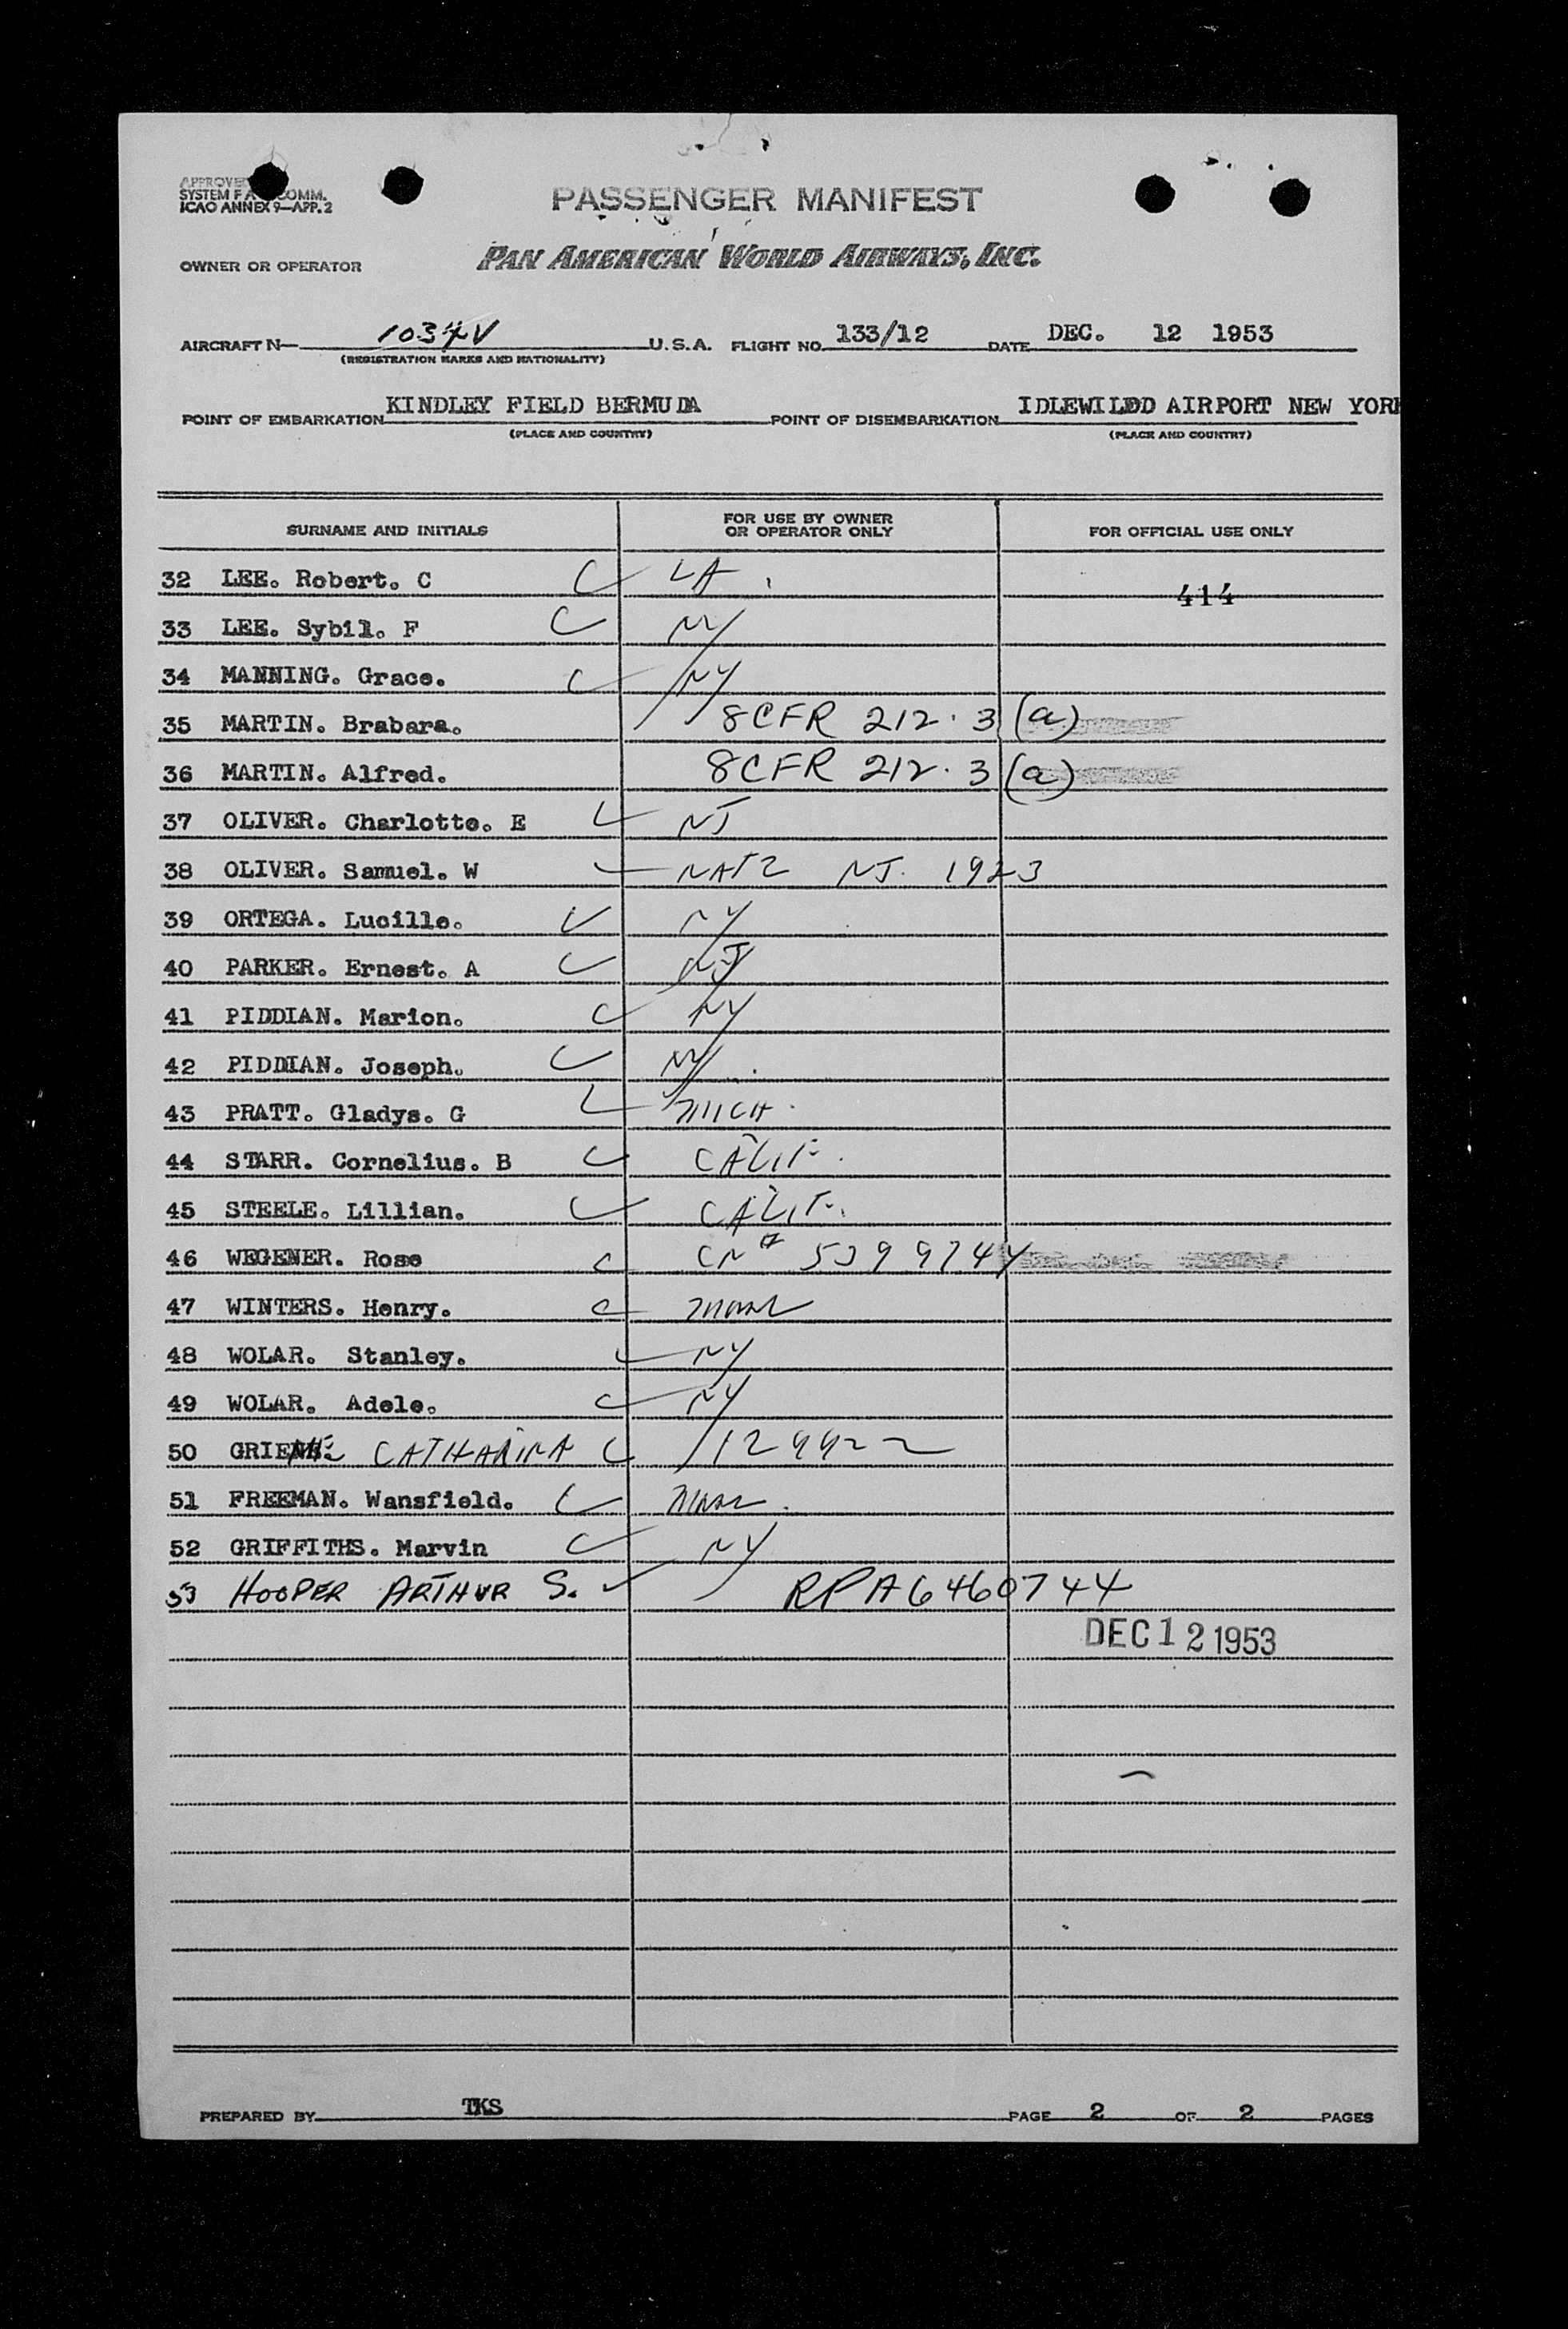 APPROVED
SYSTEM F A COMM.
ICAO ANNEX 9—APP. 2
PASSENGER MANIFEST
OWNER OR OPERATOR PAN AMERICAN WORLD AIRWAYS, INC.
AIRCRAFT N— 1034V U.S.A. FLIGHT NO. 133/12 DATE DEC. 12 1953
(REGISTRATION MARKS AND NATIONALITY)
POINT OF EMBARKATION KINDLEY FIELD BERMUDA POINT OF DISEMBARKATION IDLEWILDD AIRPORT NEW YORK
(PLACE AND COUNTRY) (PLACE AND COUNTRY)
SURNAME AND INITIALS FOR USE BY OWNER OR OPERATOR ONLY FOR OFFICIAL USE ONLY
32 LEE. Robert. C LA. 414
33 LEE. Sybil. F NY
34 MANNING. Grace. NY
35 MARTIN. Brabara. 8CFR 212.3 (a)
36 MARTIN. Alfred. 8CFR 212.3 (a)
37 OLIVER. Charlotte. E NJ
38 OLIVER. Samuel. W NATZ NJ. 1923
39 ORTEGA. Lucille. NY
40 PARKER. Ernest. A NJ
41 PIDDIAN. Marion. NY
42 PIDDIAN. Joseph. NY
43 PRATT. Gladys. G MICH.
44 STARR. Cornelius. B CALIF.
45 STEELE. Lillian. CALIF.
46 WEGENER. Rose CN# 5399744
47 WINTERS. Henry.
48 WOLAR. Stanley. NY
49 WOLAR. Adele. NY
50 CATHARINA
51 FREEMAN. Wansfield.
52 GRIFFITHS. Marvin NY
53 HOOPER ARTHUR S. RPA6460744
DEC 12 1953
PREPARED BY TKS PAGE 2 OF 2 PAGES